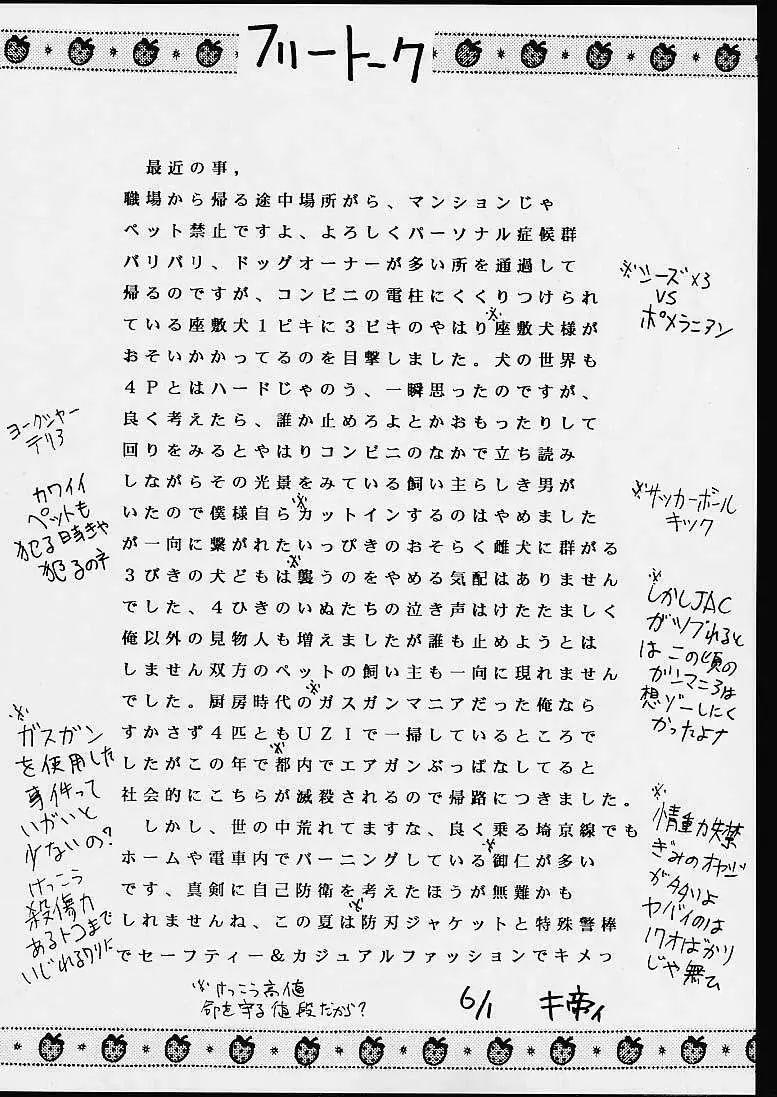 フリートーク
最近の事，
職場から帰る途中場所がら、マンションじゃ
ペット禁止ですよ、よろしくパーソナル症候群
バリバリ、ドッグオーナーが多い所を通過して
帰るのですが、コンビニの電柱にくくりつけられ
ている座敷犬１ピキに３ピキのやはり座敷犬様が
おそいかかってるのを目撃しました。犬の世界も
４Ｐとはハードじゃのう、一瞬思ったのですが、
良く考えたら、誰か止めろよとかおもったりして
回りをみるとやはりコンビニのなかで立ち読み
しながらその光景をみている飼い主らしき男が
いたので僕様自らカットインするのはやめました
が一向に繋がれたいっぴきのおそらく雌犬に群がる
３びきの犬どもは襲うのをやめる気配はありません
でした、４ひきのいぬたちの泣き声はけたたましく
俺以外の見物人も増えましたが誰も止めようとは
しません双方のペットの飼い主も一向に現れません
でした。厨房時代のガスガンマニアだった俺なら
すかさず４匹ともＵＺＩで一掃しているところで
したがこの年で都内でエアガンぶっぱなしてると
社会的にこちらが滅殺されるので帰路につきました。
しかし、世の中荒れてますな、良く乗る埼京線でも
ホームや電車内でバーニングしている御仁が多い
です、真剣に自己防衛を考えたほうが無難かも
しれませんね、この夏は防刃ジャケットと特殊警棒
でセーフティー＆カジュアルファッションでキメっ
※シーズ×3
VS
ポメラニアン
ヨークシャー
テリア
カワイイ
ペットも
犯る時きゃ
犯るのネ
※サッカーボール
キック
※しかしJAC
がツブれると
はこの頃の
ガンマニアは
想ゾーしにく
かったよナ
※
ガスガン
を使用した
事件って
いがいと
少ないの?
けっこう
殺傷力
あるトコまで
いじれるワリに
※
情動失禁
ぎみのオヤジ
がタタいよ
ヤバイのは
17才ばかり
じゃ無ひ
※けっこう高値
命を守る値段だから?
6/1